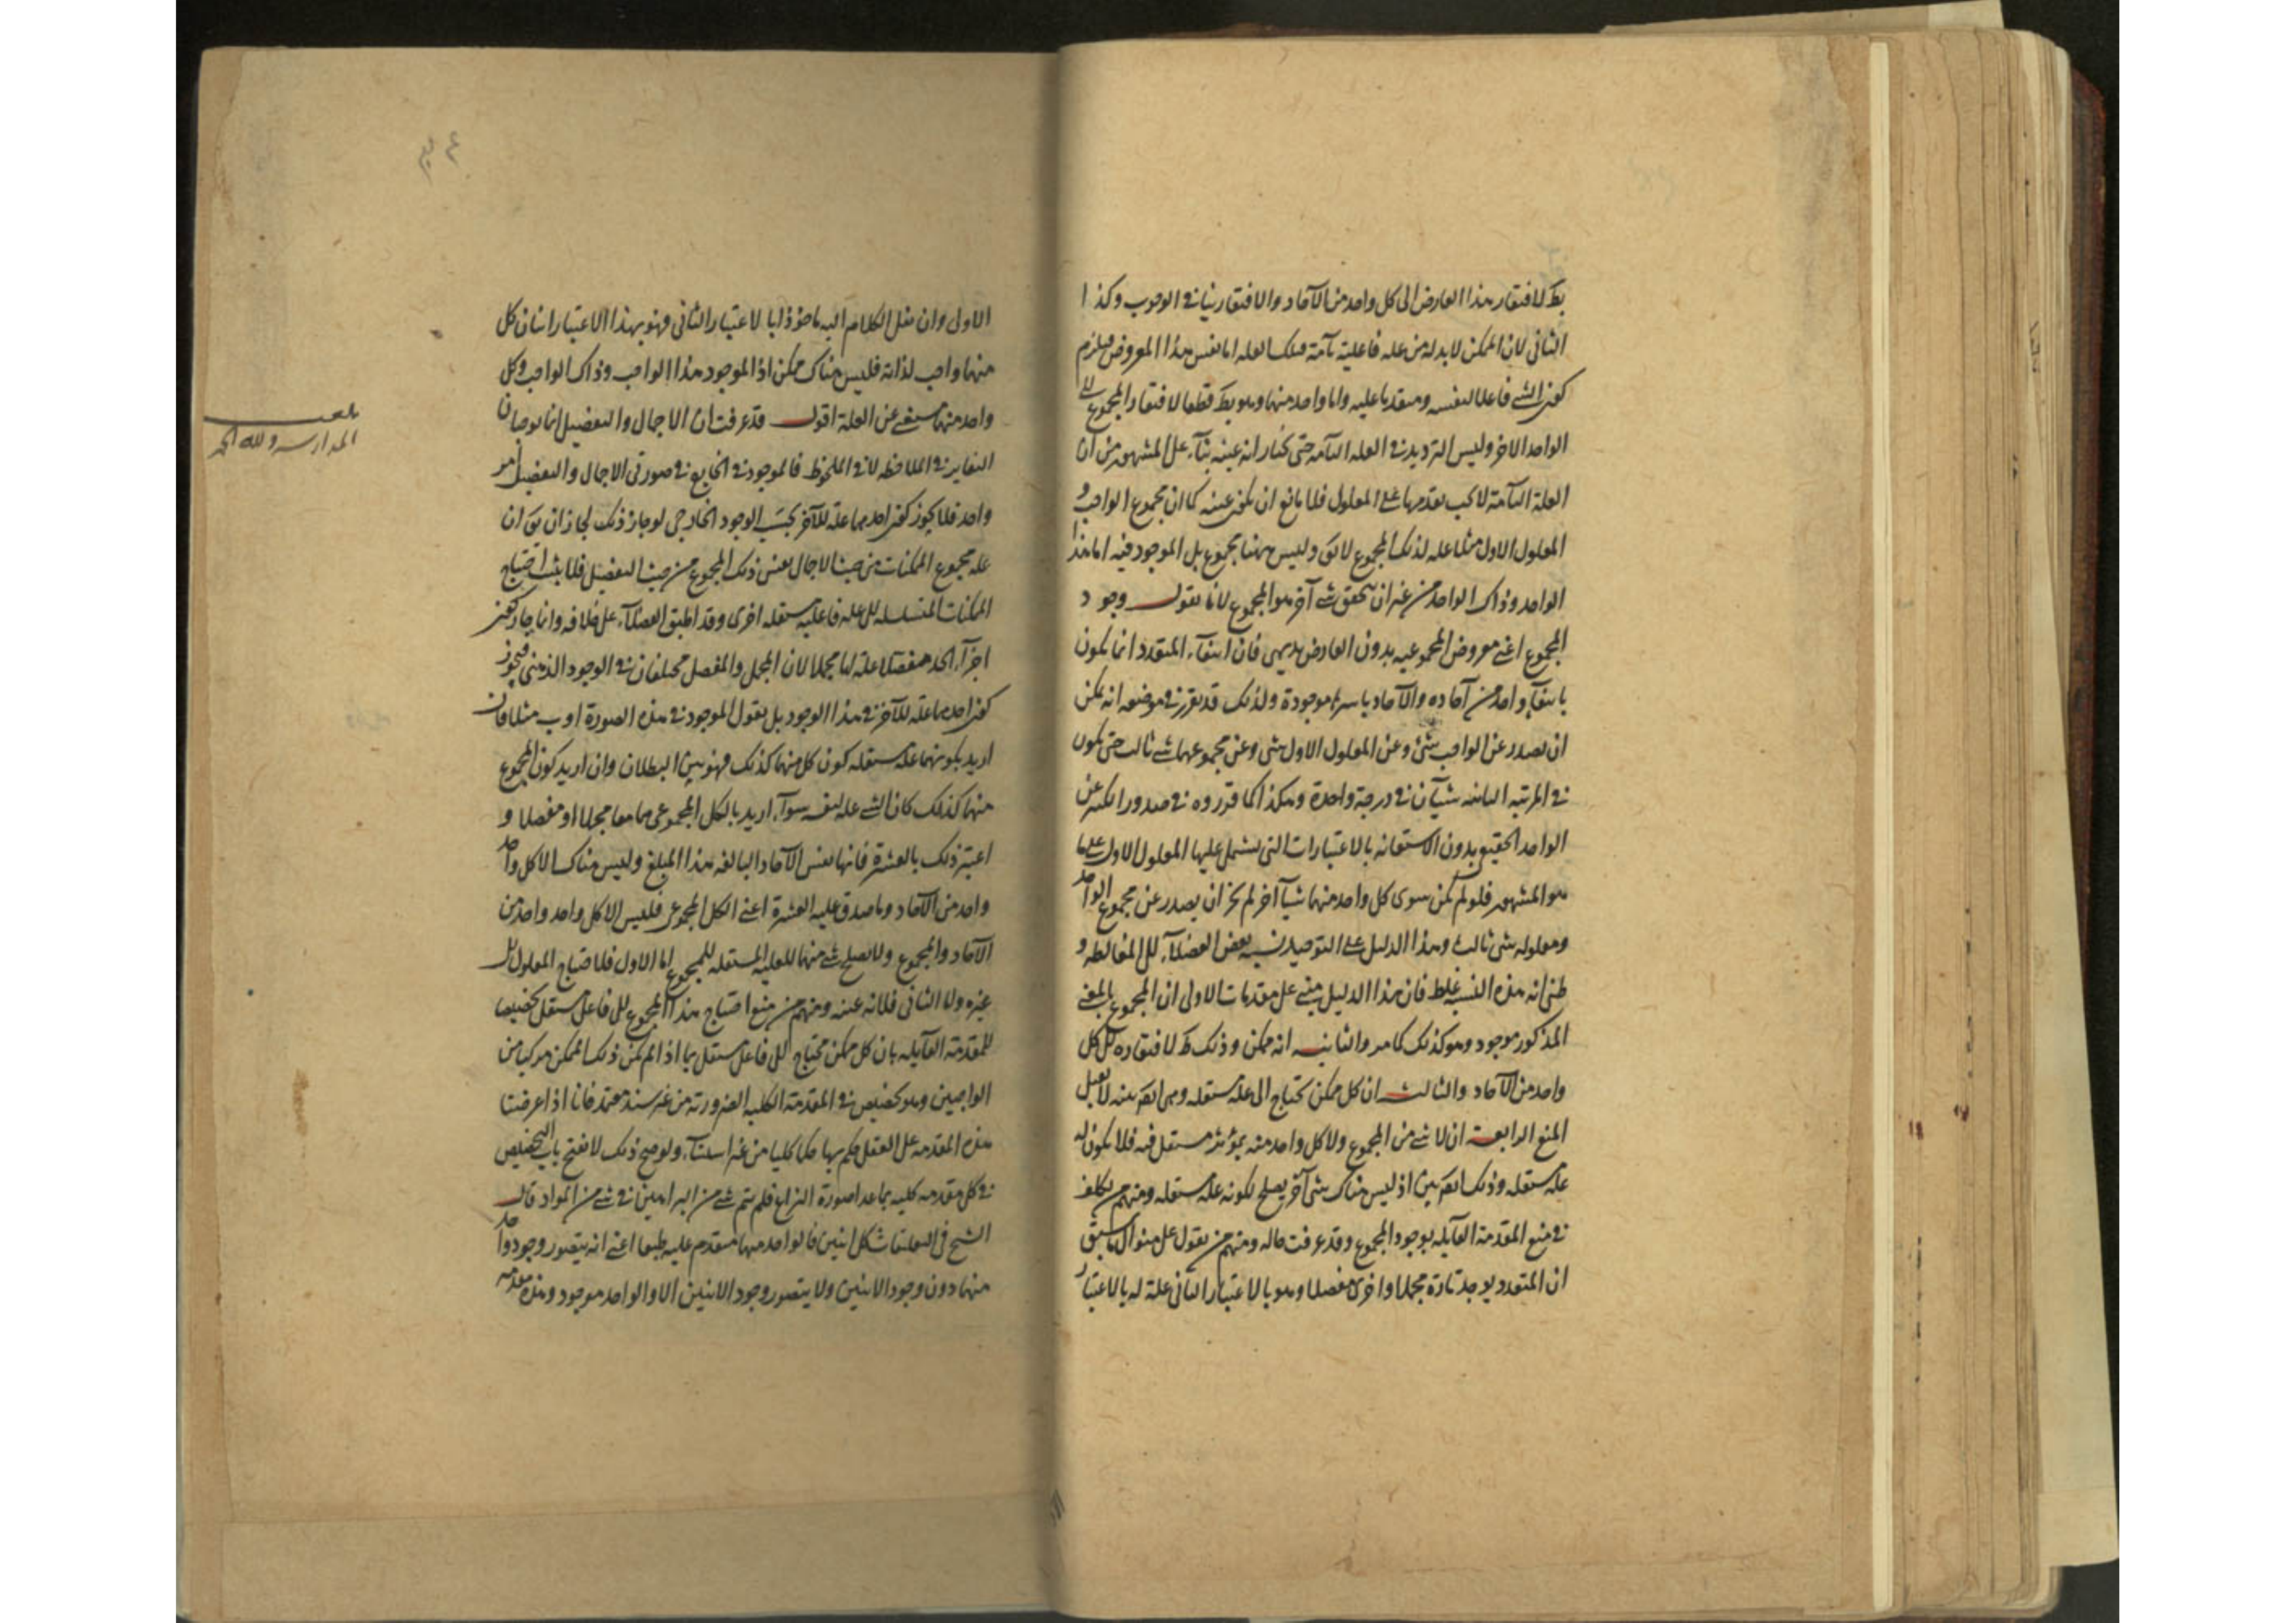 بط لافتقار هذا العارض الى كل واحد من الآحاد والافتقار ينافي الوجوب وكذا
الثاني لان الممكن لابد له من علة فاعلية تامة فتلك العلة اما نفس هذا المعروض فيلزم
كون الشئ فاعلا لنفسه ومتقدما عليه واما واحد منهما وهو بط قطعا لافتقار المجموع الى
الواحد الاخر وليس الترديد في العلة التامة حتى يختار انه عينه بناء على المشهور من ان
العلة التامة لا يجب تقدمها على المعلول فلا مانع ان يكون عينه كما ان مجموع الواجب و
المعلول الاول مثلا علة لذلك المجموع لا يق وليس ههنا مجموع بل الموجود فيه اما هذا
الواحد وذاك الواحد من غير ان يتحقق شئ آخر هو المجموع لانا نقول وجود
المجموع اعني معروض المجموعية بدون العارض بديهي فان انتفاء المتعدد انما يكون
بانتفاء واحد من آحاده والآحاد باسرها موجودة ولذلك قد تقرر في موضعه انه يمكن
ان يصدر عن الواجب شئ وعن المعلول الاول شئ وعن مجموعهما شئ ثالث حتى يكون
في المرتبة الثانية شيآن في درجة واحدة وهكذا كما قرروه في صدور الكثير عن
الواحد الحقيقي بدون الاستعانة بالاعتبارات التي يشتمل عليها المعلول الاول على ما
هو المشهور فلو لم يكن سوى كل واحد منهما شيأ آخر لم يجز ان يصدر عن مجموع الواحد
ومعلوله شئ ثالث وهذا الدليل على التوحيد نسبه بعض الفضلاء الى المغالطة و
ظني انه هذه النسبة غلط فان هذا الدليل مبني على مقدمات الاولى ان المجموع بالمعنى
المذكور موجود وهو كذلك كما مر والثانية انه ممكن وذلك ظ لافتقاره الى كل
واحد من الآحاد والثالث ان كل ممكن يحتاج الى علة مستقلة وهي ايضا بينة لا يقبل
المنع الرابعة ان لا شئ من المجموع ولا كل واحد منه بمؤثر مستقل فيه فلا يكون له
علة مستقلة وذلك ايضا بين اذ ليس هناك شئ آخر يصلح لكونه علة مستقلة ومنهم من تكلف
في منع المقدمة القايلة بوجود المجموع وقد عرفت حاله ومنهم من يقول على منوال ما سبق
ان المتعدد يوجد تارة مجملا واخرى مفصلا وهو بالاعتبار الثاني علة له بالاعتبار
الاولى وان نقل الكلام اليه ماخوذا بالاعتبار الثاني فهو بهذا الاعتبار اثنان كل
منهما واجب لذاته فليس هناك ممكن اذ الموجود هذا الواجب وذاك الواجب وكل
واحد منهما مستغن عن العلة اقول قد عرفت ان الاجمال والتفصيل انما يوجبان
التغاير في الملاحظة لا في الملحوظ فالموجود في الخارج في صورتي الاجمال والتفصيل امر
واحد فلا يجوز كون احدهما علة للآخر بحسب الوجود الخارجي لو جاز ذلك لجاز ان يق ان
علة مجموع الممكنات من حيث الاجمال نفس ذلك المجموع من حيث التفصيل فلا يثبت احتياج
الممكنات المتسلسلة الى علة فاعلية مستقلة اخرى وقد اطبق الفضلاء على خلافه وانما جاز كون
اجزاء الحد مفصلا علة لها مجملا لان المجمل والمفصل مختلفان في الوجود الذهني فيجوز
كون احدهما علة للآخر في هذا الوجود بل نقول الموجود في هذه الصورة ا و ب مثلا فان
اريد بكونهما علة مستقلة كون كل منهما كذلك فهو بين البطلان وان اريد كون المجموع
منهما كذلك كان الشئ علة لنفسه سواء اريد بالكل المجموعي هما معا مجملا او مفصلا و
اعتبر ذلك بالعشرة فانها نفس الآحاد البالغة هذا المبلغ وليس هناك الا كل واحد
واحد من الآحاد وما صدق عليه العشرة اعني الكل المجموعي فليس الا كل واحد واحد من
الآحاد والمجموع ولا يصلح شئ منهما للعلية المستقلة للمجموع اما الاول فلاحتياج المعلول الى
غيره ولا الثاني فلانه عينه ومنهم من منع احتياج هذا المجموع الى فاعل مستقل تخصيصا
للمقدمة القايلة بان كل ممكن محتاج الى فاعل مستقل بما اذا لم يكن ذلك الممكن مركبا من
الواجبين وهو تخصيص في المقدمة الكلية الضرورية من غير سند معتمد فانا اذا عرضنا
هذه المقدمة على العقل حكم بها حكما كليا من غير استثناء ولو صح ذلك لانفتح باب التخصيص
في كل مقدمة كلية بما عدا صورة النزاع فلم يتم شئ من البراهين في شئ من المواد قال
الشيخ في التعليقات كل اثنين فالواحد منهما متقدم عليه طبعا اعني انه يتصور وجود واحد
منهما دون وجود الاثنين ولا يتصور وجود الاثنين الا والواحد موجود وهذه مقدمة
المدارسة ولله الحمد